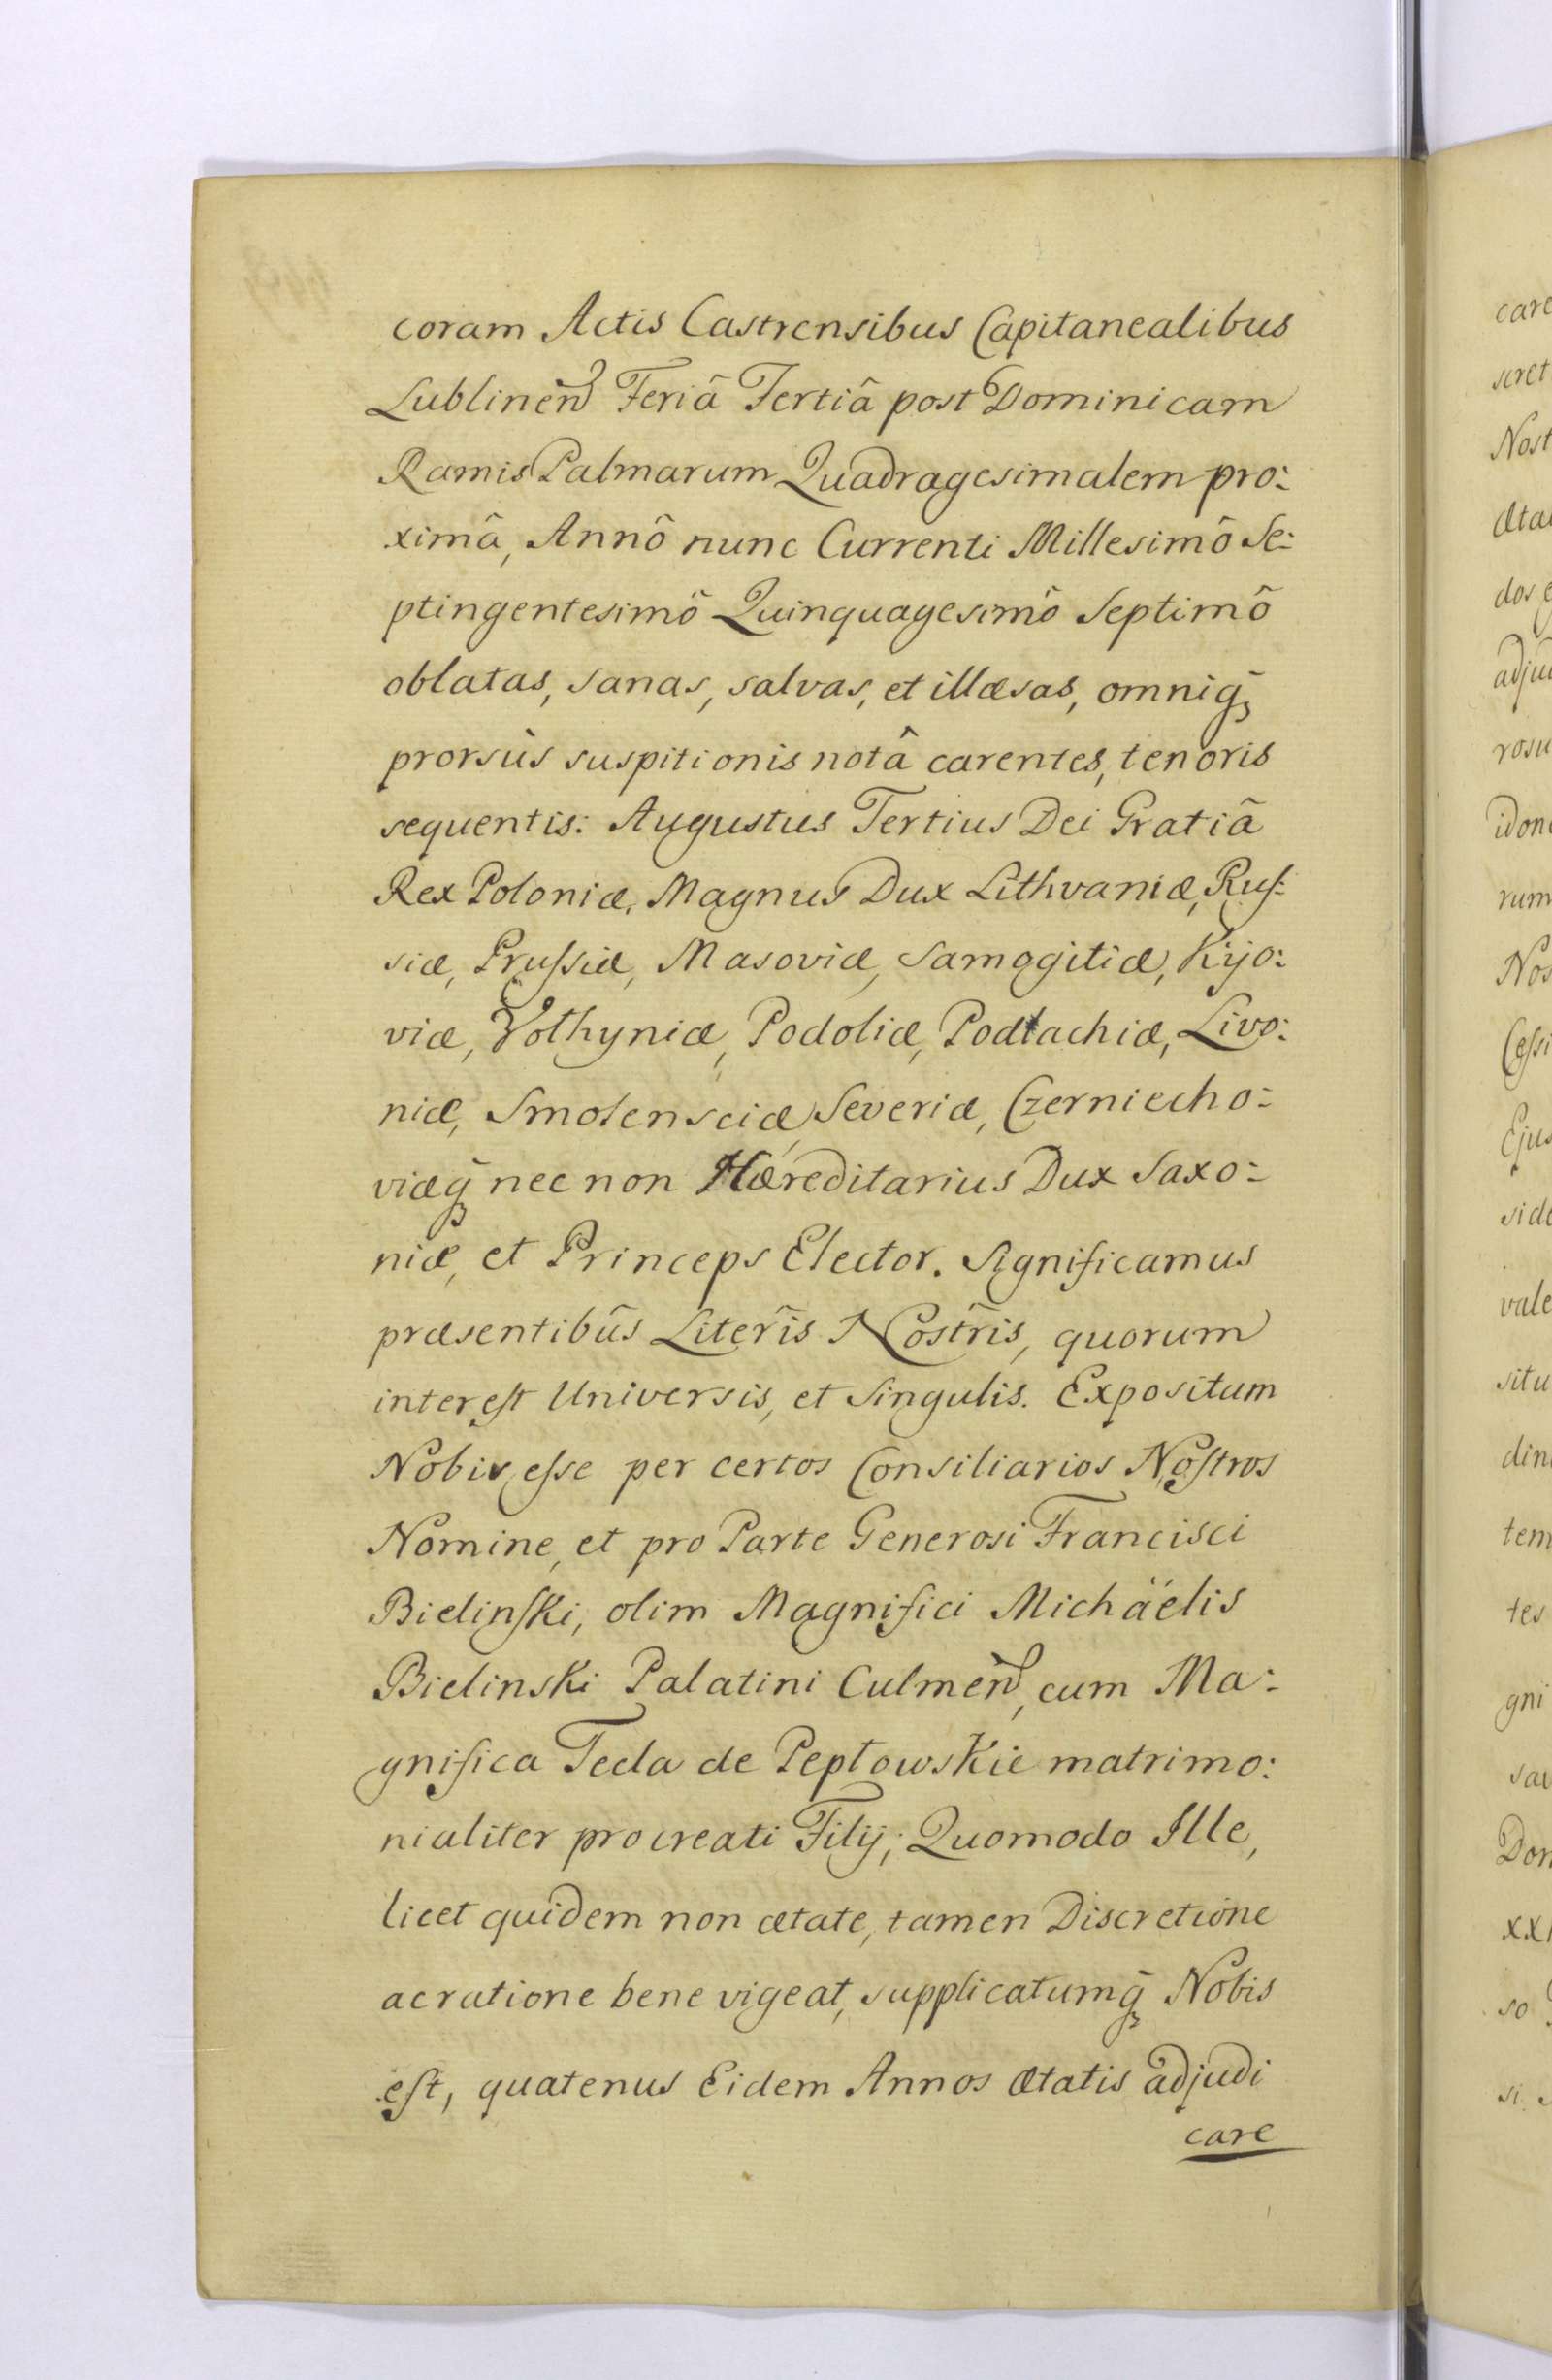 coram Actis Castrensibus Capitanealibus
Lublinen̄ Feriâ Tertiâ post Dominicam
Ramis Palmarum Quadragesimalem pro:
ximâ, Annô nunc Currenti Millesimô Se:
ptingentesimô Quinquagesimô Septimô
oblatas, sanas, salvas, et illæsas, omniq̄;
prorsùs suspitionis notâ carentes, tenoris
sequentis: Augustus Tertius Dei Gratiâ
Rex Poloniæ, Magnus Dux Lithvaniæ, Rus:
siæ, Prussiæ, Masoviæ, Samogitiæ, Kijo:
viæ, Volhyniæ, Podoliæ, Podlachiæ, Livo:
niæ, Smolensciæ, Severiæ, Czerniecho:
viæq̄; nec non Hæreditarius Dux Saxo:
niæ, et Princeps Elector. Significamus
præsentibûs Literîs Nostrîs, quorum
interest Universis, et Singulis. Expositum
Nobis esse per certos Consiliarios Nostros
Nomine, et pro Parte Generosi Francisci
Bielinski, olim Magnifici Michäelis
Bielinski Palatini Culmen̄, cum Ma:
gnifica Tecla de Pepłowskie matrimo:
nialiter procreati Filij; Quomodo Ille,
licet quidem non ætate, tamen Discretione
ac ratione bene vigeat, supplicatumq̄; Nobis
est, quatenus Eidem Annos ætatis adjudi
care
care
scret
Nost
æta
dos
adju
rosu
idon
rum
Nos
Cessi
Ejus
side
vale
situ
din
tem
tes
gni
sau
Don
xx
so
si